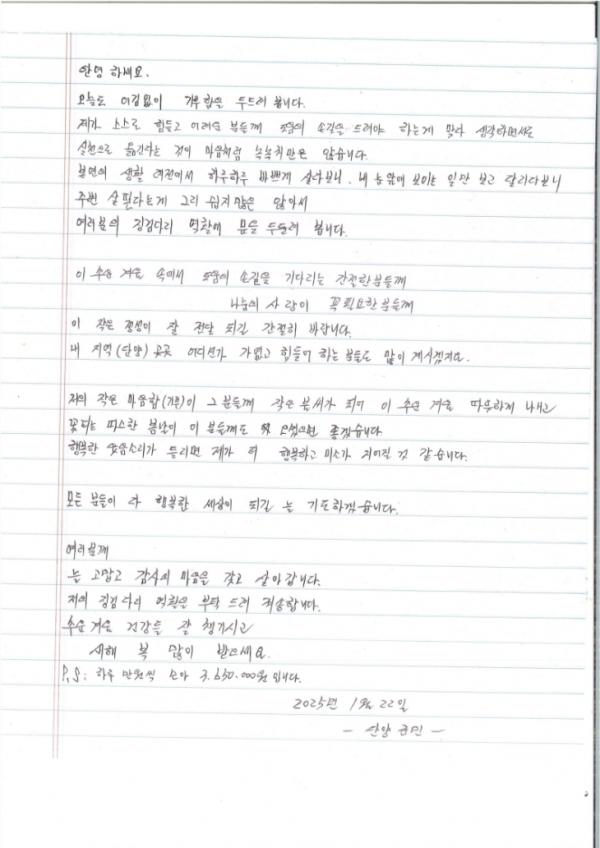 안녕 하세요.
오늘도 어김없이 기부함을 두드려 봅니다.
제가 스스로 힘들고 어려운 분들께 도움의 손길을 드려야 하는게 맞다 생각하면서도
실천으로 옮긴다는 것이 마음처럼 녹녹치만은 않습니다.
본연의 생활 여건에서 하루하루 바쁘게 살다보니. 내 눈앞에 보이는 일만 보고 달리다보니
주변 살핀다는게 그리 쉽지많은 않아서
여러분의 징검다리 역할에 문을 두들려 봅니다.
이 추운 겨울 속에서 도움이 손길을 기다리는 간절한분들께
나눔의 사랑이 꼭 필요한분들께
이 작은 정성이 잘 전달 되길 간절히 바랍니다.
내 지역(단양) 곳곳 어디선가 가엽고 힘들어 하는 분들도 많이 계시겠지요.
저의 작은 마음함(기부)이 그 분들께 작은 불씨가 되어 이 추운 겨울 따듯하게 나내고
꽃피는 따스한 봄날이 이 분들께도 오셨으면 좋겠습니다
행복한 웃음소리가 들리면 제가 더 행복하고 미소가 지어질 것 같습니다.
모든 분들이 다 행복한 세상이 되길 늘 기도하겠습니다.
여러분께
늘 고맙고 감사의 마음을 갖고 살아갑니다.
저의 징검다리 역할을 부탁 드려 죄송합니다.
추운 겨울 건강들 잘 챙기시고
새해 복 많이 받으세요.
P.S: 하루 만원씩 모아 3.650.000원 입니다.
2025년 1월 22일
- 단양 군민 -